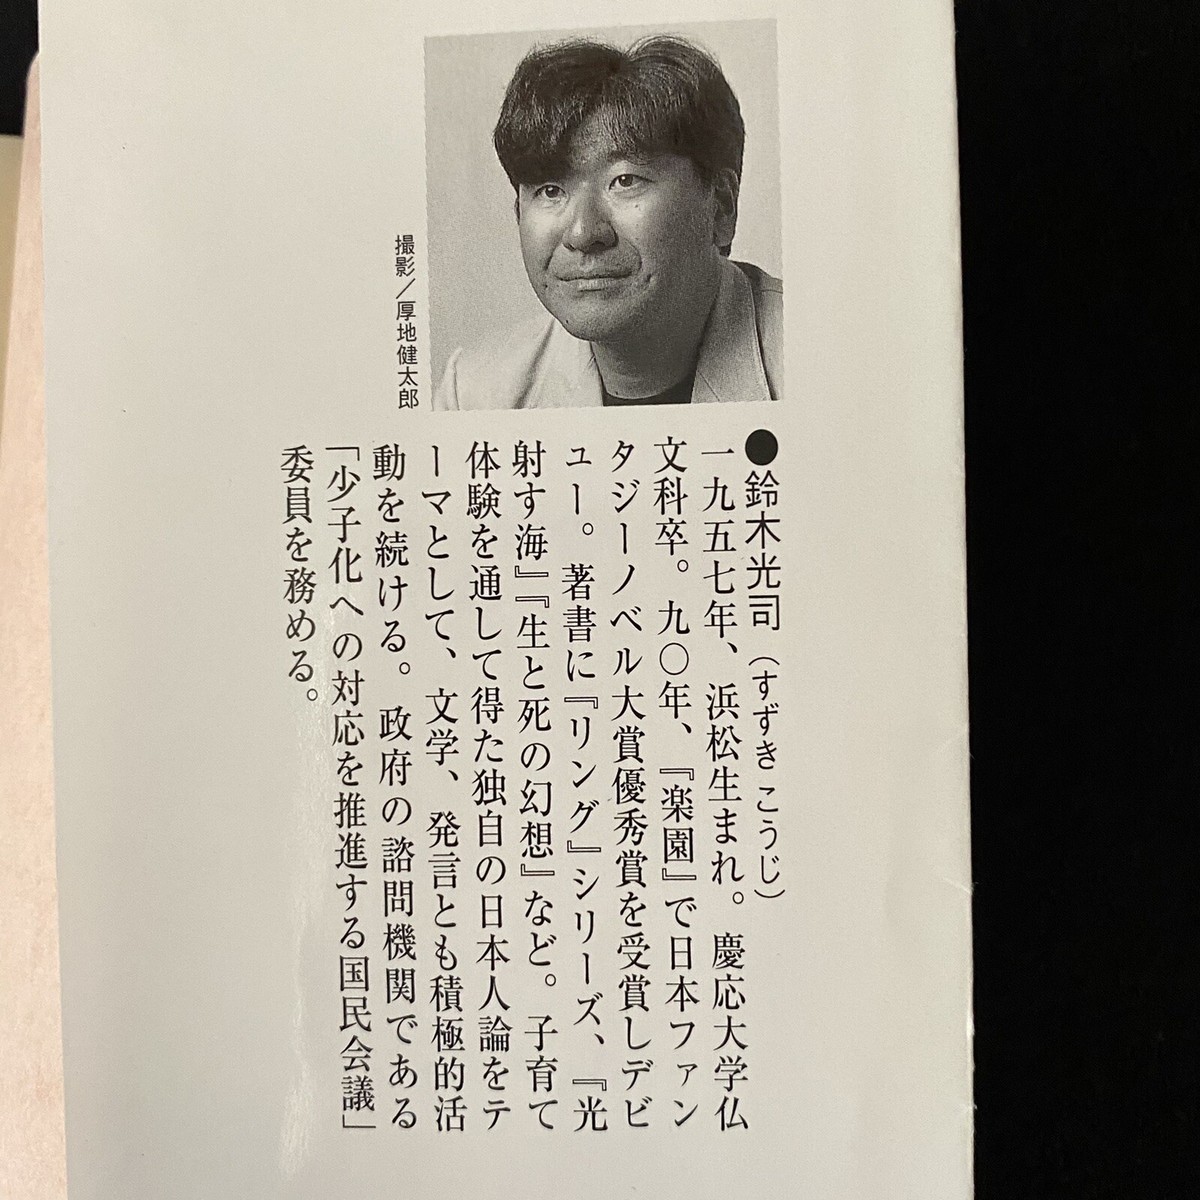 撮影／厚地健太郎
●鈴木光司（すずき こうじ）
一九五七年、浜松生まれ。慶応大学仏
文科卒。九〇年、『楽園』で日本ファン
タジーノベル大賞優秀賞を受賞しデビ
ュー。著書に『リング』シリーズ、『光
射す海』『生と死の幻想』など。子育て
体験を通して得た独自の日本人論をテ
ーマとして、文学、発言とも積極的活
動を続ける。政府の諮問機関である
「少子化への対応を推進する国民会議」
委員を務める。